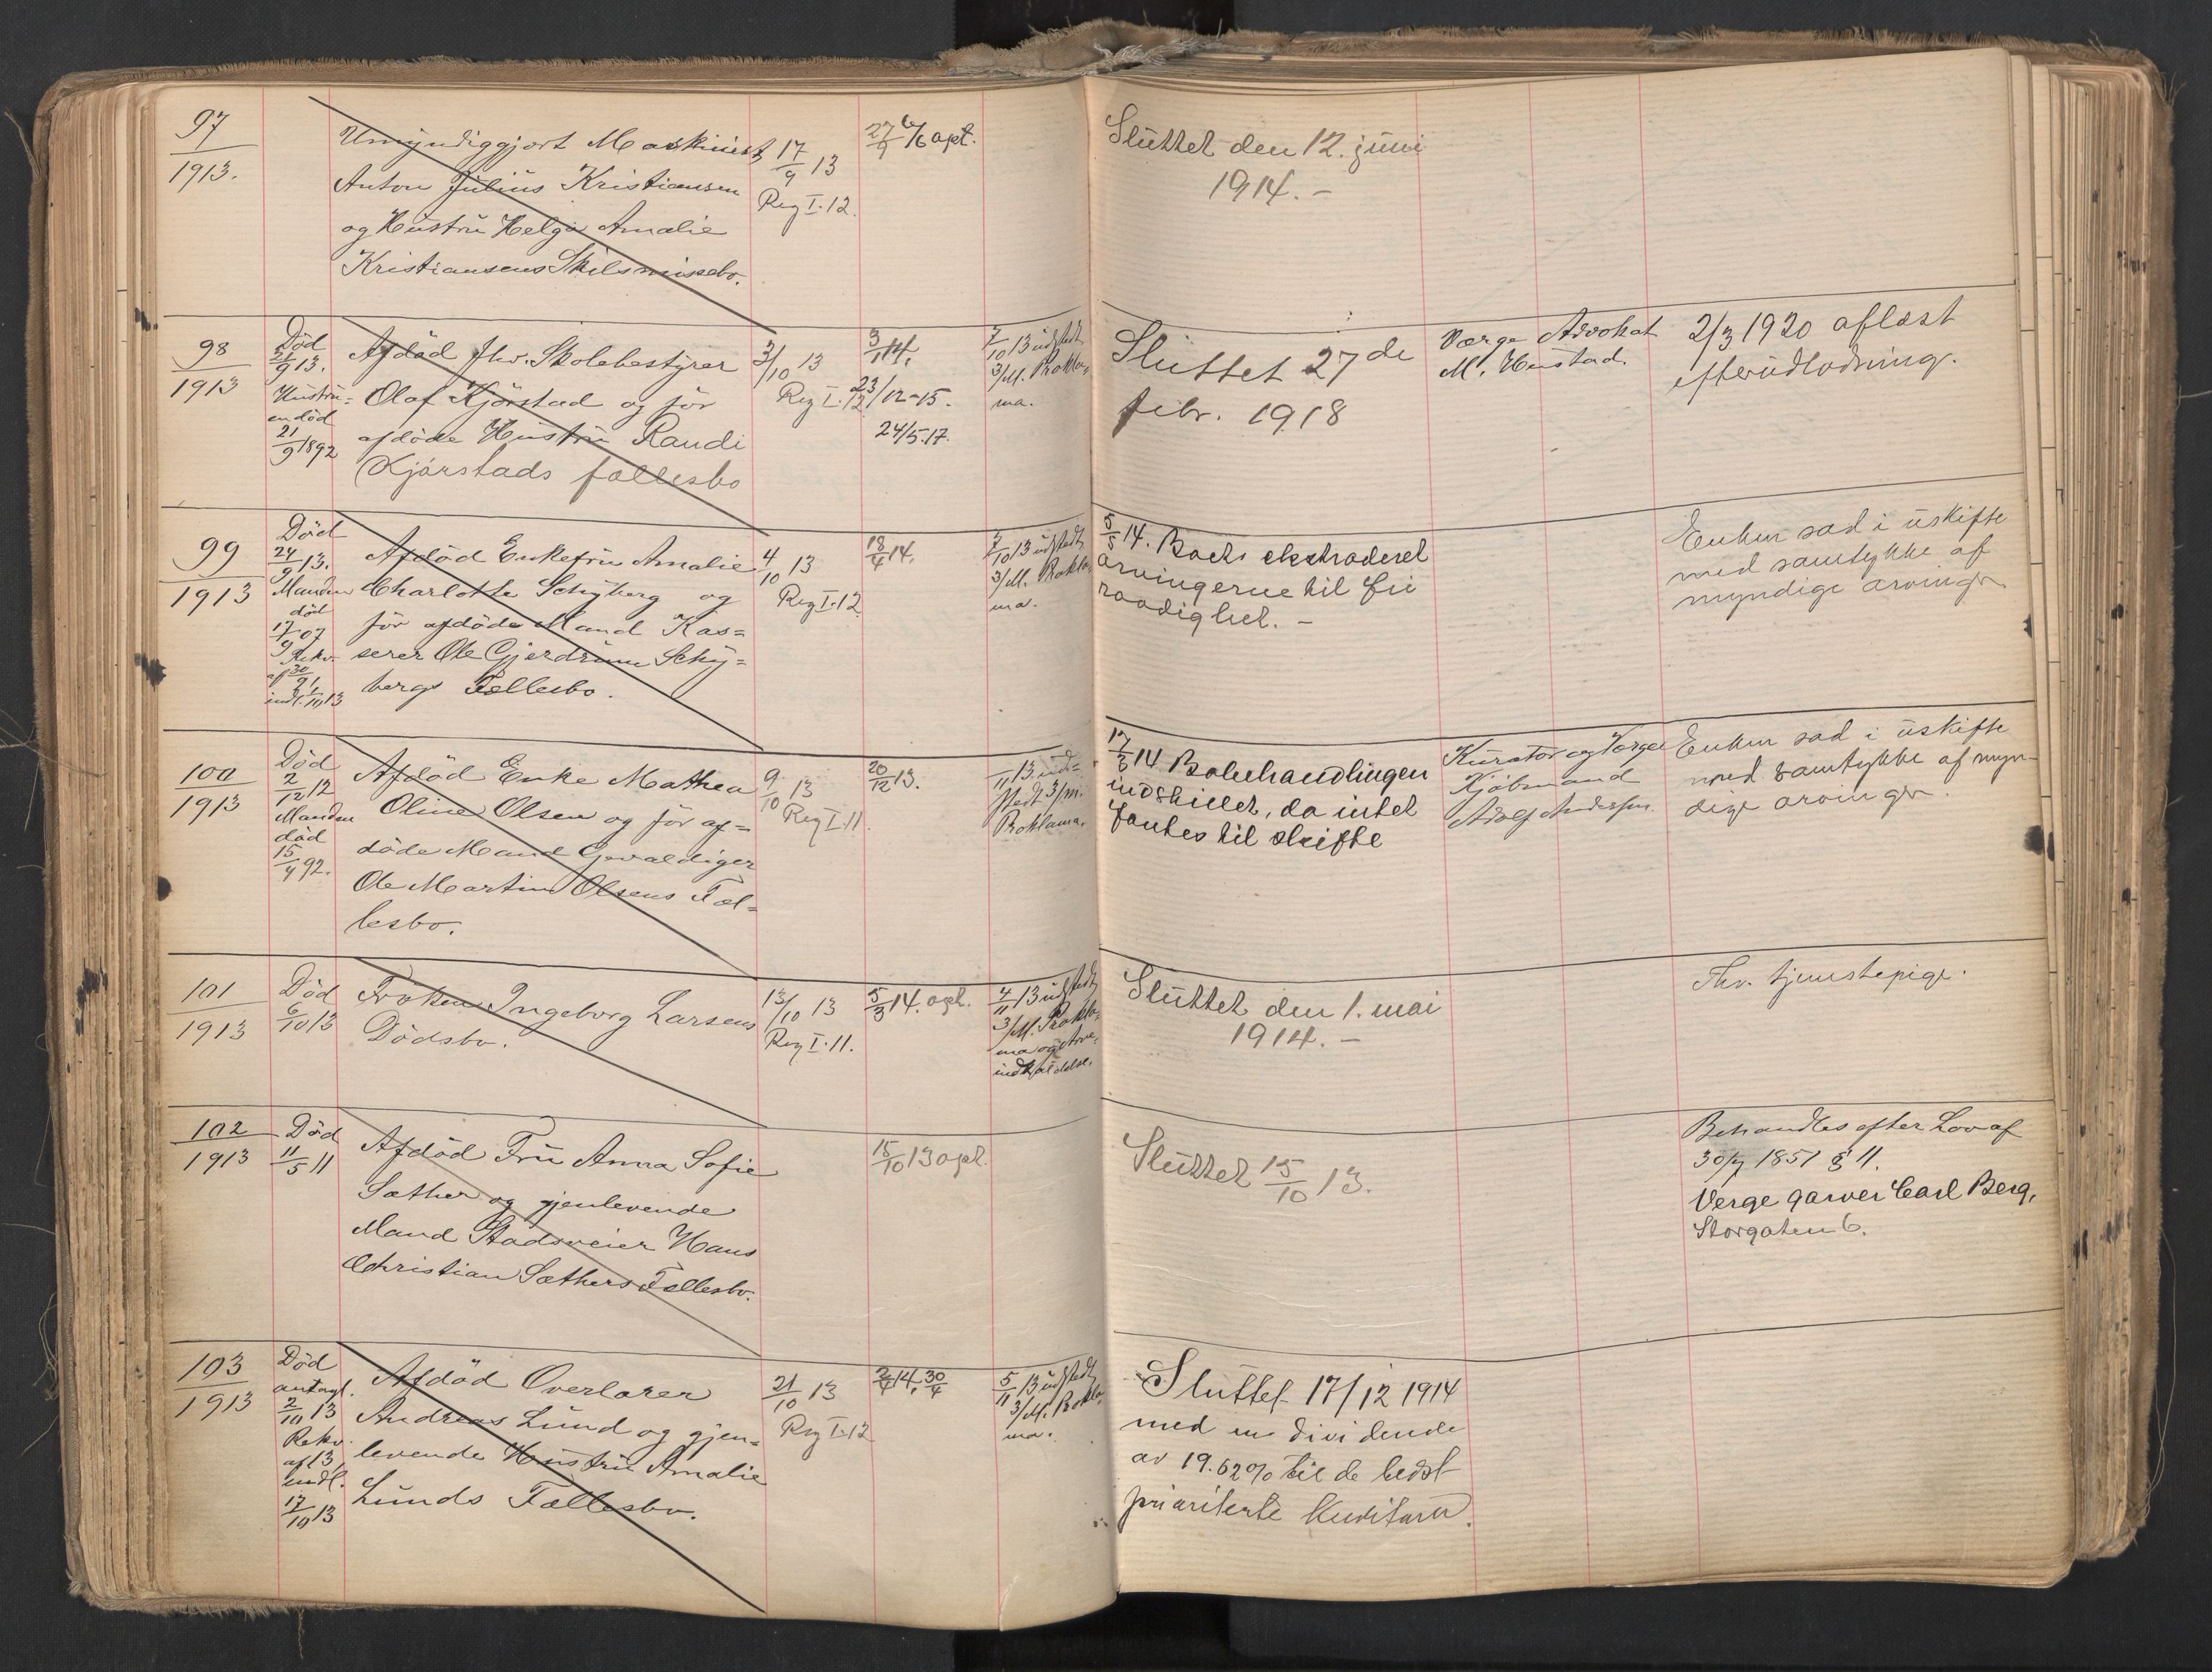 97
1913.
Umyndiggjort Maskinist
Anton Julius Kristiansen
og Hustru Helga Amalie
Kristiansens Skilsmissebo.
17/9 13
Reg I. 12.
6/6 opt.
Sluttet den 12. juni
1914. –
98
1913
Død
21/9 13.
Hustru=
en død
21/9 1892
Afdød fhv. Skolebestyrer
Olaf Kjørstad og før
afdøde Hustru Randi
Kjørstads fællesbo
3/10 13
Reg I. 12
3/1 14.
23/12–15.
24/5 17.
7/10 13 udstedt
3/M. Prokla=
ma.
Sluttet 27de
febr. 1918
Værge Advokat
M. Hustad.
2/3 1920 aflæst
efterudlodning.
99
1913
Død
24/9 13.
Manden
død
17/9 07
Rekv.
af 30/9
indl. 1/10 13
Afdød Enkefru Amalie
Charlotte Schyberg og
før afdøde Mand Kas=
serer Ole Gjerdrum Schy=
bergs Fællesbo.
4/10 13
Reg I. 12
18/4 14.
7/10 13 udstedt
3/M. Prokla=
ma.
5/5 14. Boets ekstraderet
arvingerne til fri
raadighet. –
Enken sad i uskifte
med samtykke af
myndige arvinger
100
1913
Død
2/12 12
Manden
død
15/4 92.
Afdød Enke Mathea
Oline Olsen og før af=
døde Mand Gevaldiger
Ole Martin Olsens Fæl=
lesbo.
9/10 13
Reg I. 11.
20/12 13.
/11 13 ud=
stedt 3/m.
Proklama.
17/6 14 Bobehandlingen
indstillet, da intet
fantes til skifte
Kurator og Værge
Kjøbmand
Adolf Andersen.
Enken sad i uskifte
med samtykke af myn=
dige arvinger.
101
1913
Død
6/10 13
Frøken Ingeborg Larsens
Dødsbo.
13/10 13
Reg I. 11.
5/3 14. opt.
4/11 13 udstedt
3/M. Prokla=
ma og Arve=
indkaldelse.
Sluttet den 1. mai
1914. –
Fhv. tjenestepige.
102
1913
Død
11/5 11
Afdød Fru Anna Sofie
Sæther og gjenlevende
Mand Stadsveier Hans
Christian Sæthers Fællesbo.
15/10 13 opt.
Sluttet 15/10 13.
Behandles efter Lov af
30/7 1851 § 11.
Verge garver Carl Berg,
Storgaten 6.
103
1913
Død
antagl.
2/10 13
Rekv.
af 13,
indl.
17/10 13
Afdød Overlærer
Andreas Lund og gjen=
levende Hustru Amalie
Lunds Fællesbo.
21/10 13
Reg I. 12
2/4 14, 30/4
5/11 13 udstedt
3/M. Prokla=
ma.
Sluttet 17/12 1914
med en dividende
av 19.62% til de bedst
prioriterte kreditorer.